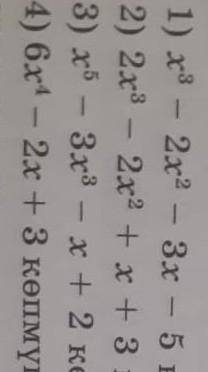 1) x³ − 2x² − 3x − 5
2) 2x³ − 2x² + x + 3
3) x⁵ − 3x³ − x + 2
4) 6x⁴ − 2x + 3